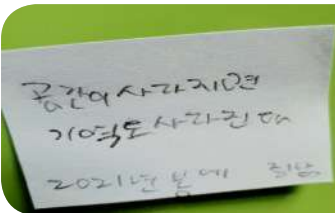 공간이 사라지면
기억도 사라진다
2021년 봄에